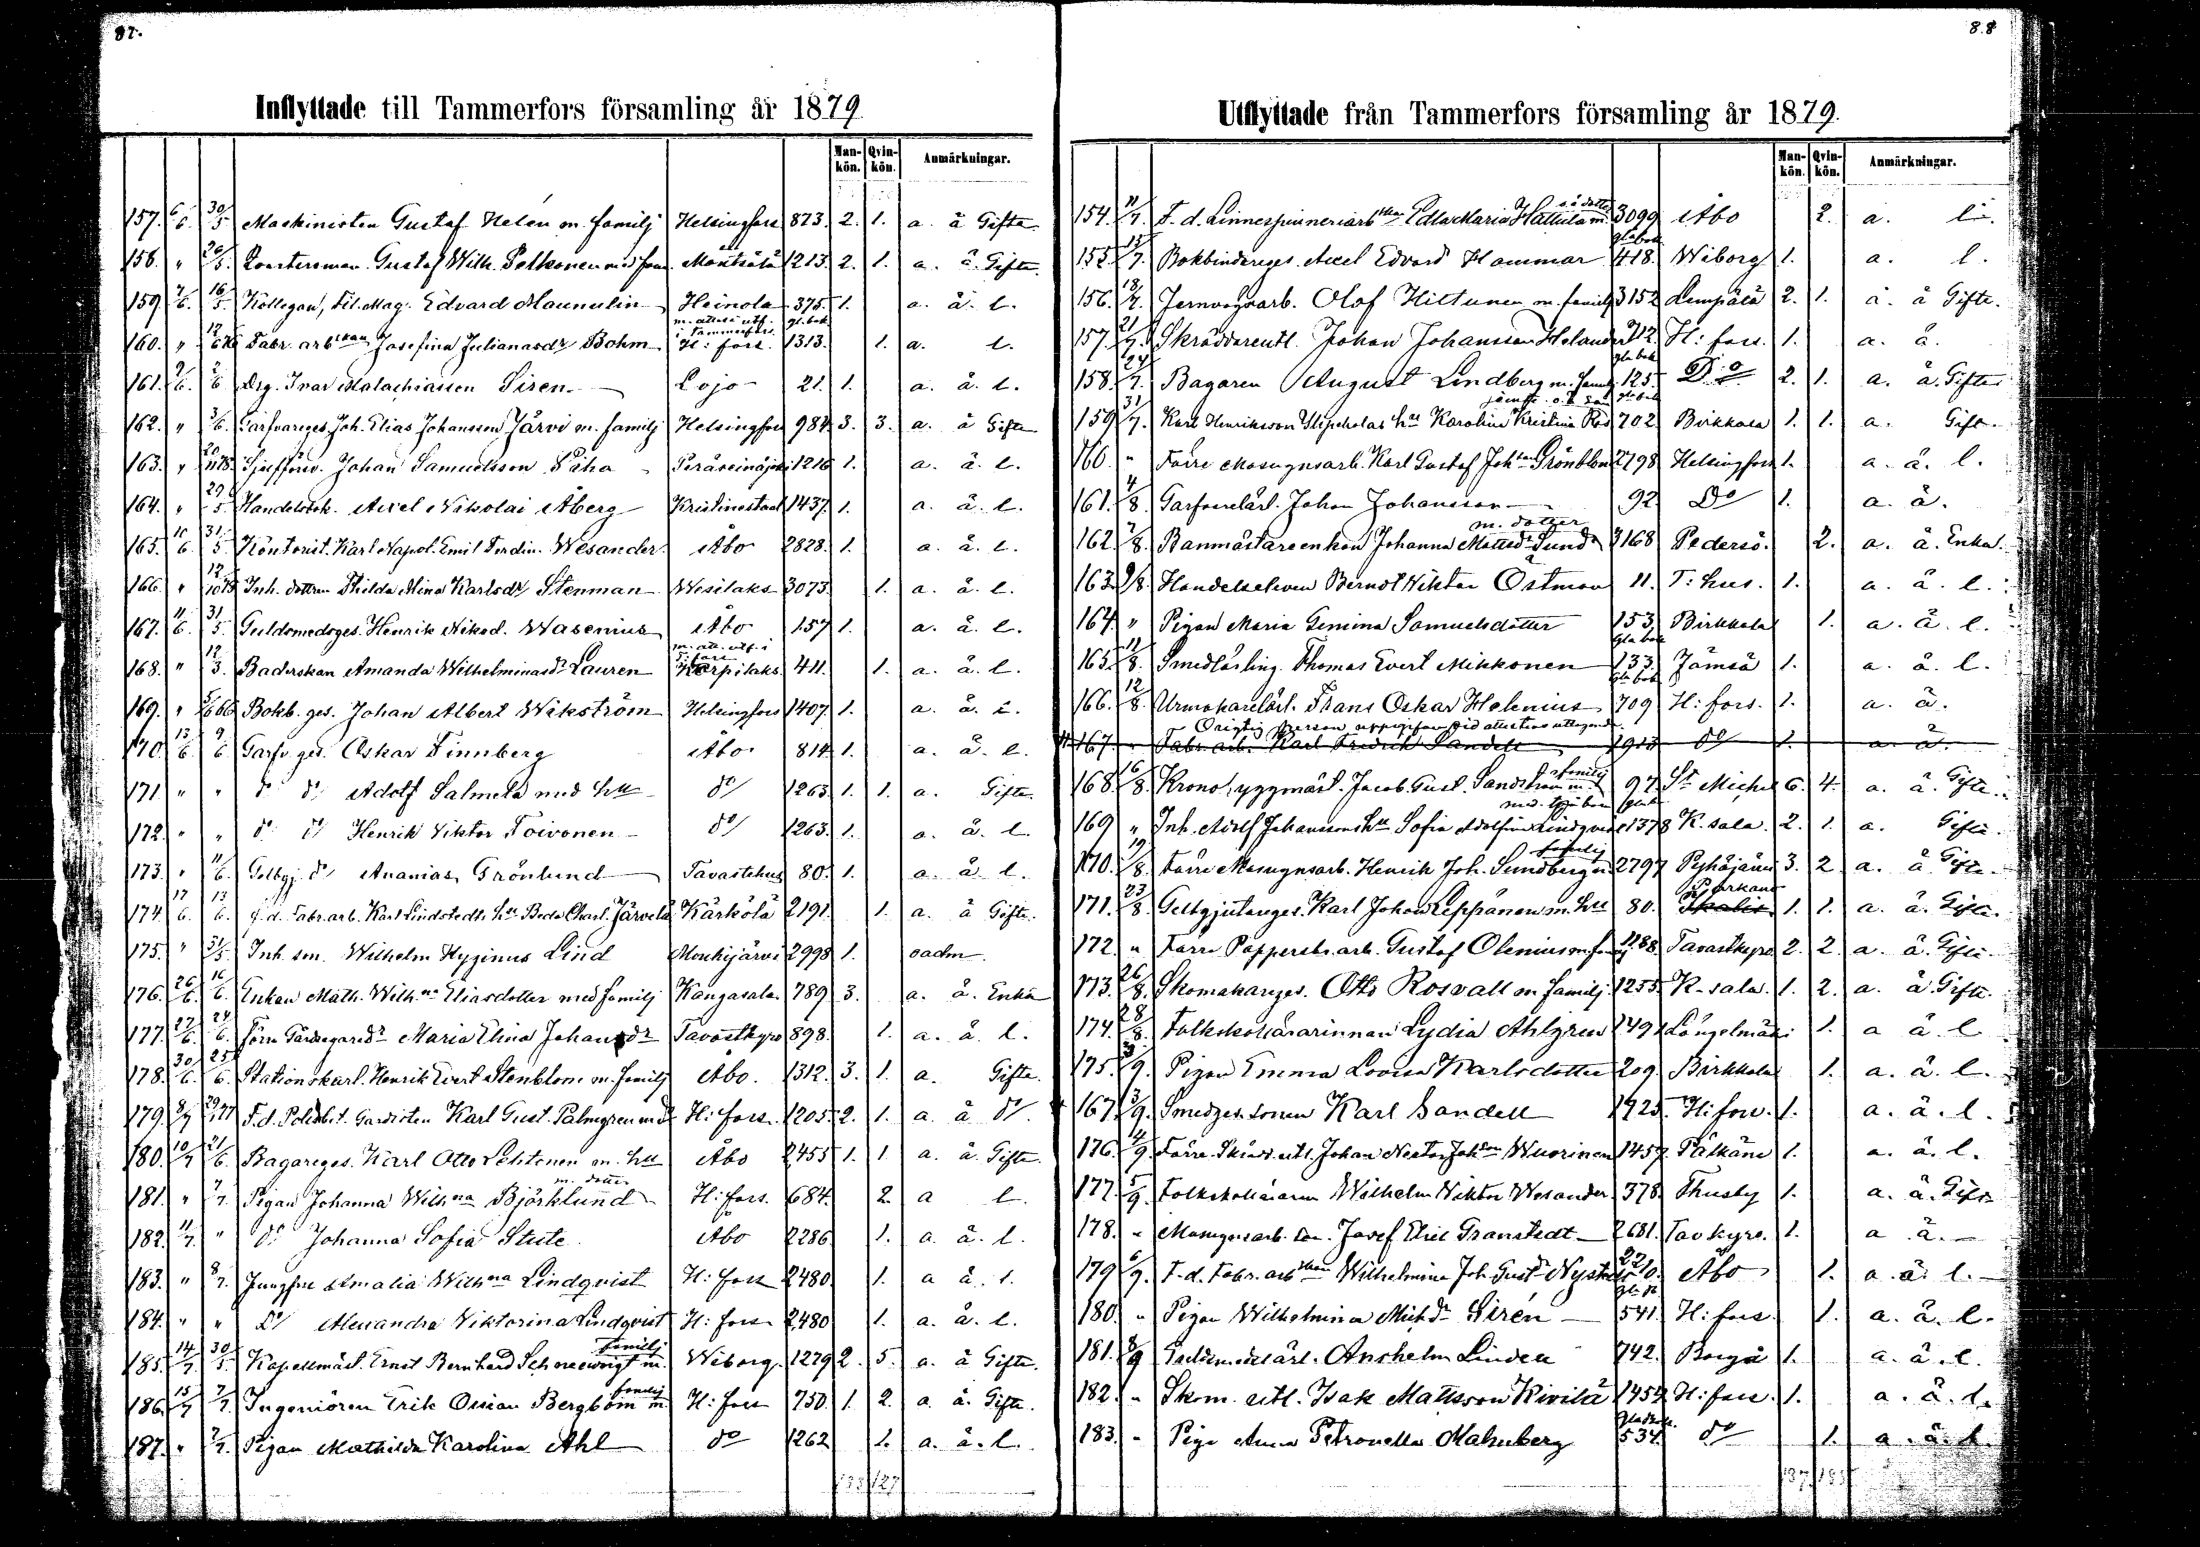 87.
Inflyttade till Tammerfors församling år 1879
Man-kön. Qvin-kön. Anmärkningar.
157. 6/6. 30/5 Machinisten Gustaf Helén m. familj Helsingfors 873. 2. 1. a. å Gifta.
158. " 26/5. Gustaf Wilh. Pelkonen med fam. Mäntsälä 1213. 2. 1. a. å. Gifta.
159 7/6. 16/5. Kollegan, Fil. Mag. Edvard Maunulin Heinola 375. 1. a. å. l.
m. attest utf. i Tammerfors. gl. bok
160. " Fabr. arbskan Josefina Julianasdr Bohm H:fors. 1313. 1. a. l.
161. 9/6. 2/6 Drg. Ivar Malachiassen Siren Lojo 21. 1. a. å. l.
162. " 3/6. Garfvareges. Joh. Elias Johansson Järvi m. familj Helsingfors 984. 3. 3. a. å Gifta
163. " Johan Samuelsson Piha 1216 1. a. å. l.
164. " 29/5. Handelsbok. Axel Nikolai Åberg Kristinestad 1437. 1. a. å. l.
165. 10/6. 31/5 Kontorist. Karl Napol. Emil Ferdin. Wesander. Åbo 2828. 1. a. å. l.
166. " Inh. dottren Hilda Alina Karlsdr Stenman Wesilaks 3073. 1. a. å. l.
167. 11/6. 31/5. Guldsmedsges. Henrik Nikod. Wasenius Åbo 157 1. a. å. l.
m. att. utf. i T:fors
168. " 12/3. Baderskan Amanda Wilhelminasdr Lauren Karpilaks 411. 1. a. å. l.
169. " Bokb. ges. Johan Albert Wikström Helsingfors 1407. 1. a. å. l.
170. 13/6. 9/6 Garfv. ges. Oskar Finnberg Åbo 814 1. a. å. l.
171 " " do do Adolf Salmela med hu do 1263. 1. 1. a. Gifta.
172. " " do do Henrik Viktor Toivonen do 1263. 1. a. å. l.
173. " 11/6. Gelbgj. do Ananias Grönlund Tavastehus 80. 1. a. å l.
174. 17/6. 13/6. f. d. Fabr. arb. Karl Lindstedts hu Beda Charl. Järvelä Kärkölä 2191. 1. a. å Gifta.
175. " 31/5. Inh. son. Wilhelm Hyginus Lind Mouhijärvi 2998 1. oadm.
176. 26/6. 16/6. Enkan Math. Wilhna Eliasdotter med familj Kangasala. 789 3. a. å. Enka
177. 27/6. 24/6. Förra Maria Elina Johansdr Tavastkyro 898. 1. a. å. l.
178. 30/6. 25/6. Stationskarl. Henrik Evert Stenblom m. familj Åbo. 1312. 3. 1. a. Gifta.
179. 8/7 F. d. Gardisten Karl Gust. Palmgren H:fors. 1205. 2. 1. a. å do
180. 10/7 21/6. Bagareges. Karl Otto Lehtonen m. hu Åbo 2455 1. 1. a. å Gifta.
m. dotter
181. " 7/7. Pigan Johanna Wilhna Björklund H:fors. 684. 2. a l.
182. 11/7. " do Johanna Sofia Stute Åbo 2286 1. a. å. l.
183. " 8/7. Jungfru Amalia Wilhna Lindqvist H:fors 2480 1. a å. l.
184. " " do Alexandra Viktorina Lindqvist H:fors 2480 1. a. å. l.
familj
185. 14/7. 30/5. Kapellmäst. Ernst Bernhard Schneevoigt m. Wiborg. 1279 2. 5. a. å Gifta.
familj
186. 15/7 7/7. Ingeniören Erik Ossian Bergbom m. H:fors 750. 1. 2. a. å. Gifta.
187. " 7/7. Pigan Mathilda Karolina Ahl do 1262 1. a. å. l.
127
88
Utflyttade från Tammerfors församling år 1879.
Man-kön. Qvin-kön. Anmärkningar.
154. 11/7. F. d. Linnespinneriarbskan Edla Maria Hattula m. 3099 Åbo 2. a. l.
gla bok
155. 15/7. Bokbindareges. Axel Edvard Hammar 418. Wiborg 1. a. l.
156. Jernvägsarb. Olof Hiltunen m. familj 3152 Lempälä 2. 1. a. å Gifta.
157. 21/7. Skräddareutl. Johan Johansson Helander H:fors. 1. a. å.
gla bok
158. 24/7. Bagaren August Lindberg m. familj 125. Do 2. 1. a. å. Gifta
159. 31/7. Karl Henriksson hu Karolina Kristina 702 Birkkala 1. 1. a. Gift.
160. " Förre Masugnsarb. Karl Gustaf Johsson Grönblom 2798 Helsingfors 1. a. å. l.
161. 4/8. Garfvarelärl. Johan Johansson 92. Do 1. a. å.
m. dotter
162. 7/8. Banmästareenkan Johanna Mattsdr Sund 3168 Pedersö. 2. a. å. Enka.
163. 9/8. Bernot Wiktor Östman 11. T:hus. 1. a. å. l.
164. " Pigan Maria Gemima Samuelsdotter 153. Birkkala 1. a. å. l.
gla bok
165. 11/8. Smedlärling. Thomas Evert Mikkonen 133. Jämsä 1. a. å. l.
gla bok
166. 12/8. Urmakarelärl. Frans Oskar Helenius 709 H:fors. 1. a. å.
Origtig person uppgifven vid attestens uttagande.
167. " Fabr. arb. Karl Fredrik Sandell 1913 do 1. a. å.
familj
168. 16/8. Jacob Gust. Sandström m. 97. St Michel 6. 4. a. å. Gifta.
169 " Inh. Adolf Johanssons hu Sofia Adolfina Lindqvist 1378 K. sala. 2. 1. a. Gifta.
familj
170. 19/8. Förre Masugnsarb. Henrik Joh. Sundberg m. 2797 Pyhäjärvi 3. 2 a. å Gifta.
Parkano
171. 23/8. Gelbgjutareges. Karl Johan Leppänen m. hu 80. Ikalis 1. 1. a. å. Gifta.
172 " Förre Pappersbr. arb. Gustaf Olenius m. fam. 1288. Tavastkyro 2. 2 a. å. Gifta.
173. 26/8. Skomakareges. Otto Rosvall m familj. 1255. K-sala. 1. 2. a. å Gifta.
174. 28/8. Folkskollärarinnan Lydia Ahlgren 2492 Längelmäki 1. a å l
175. Pigan Emma Lovisa Karlsdotter 209. Birkkala 1. a. å. l.
167. 3/9. Smedges. sonen Karl Sandell 1925. H:fors. 1. a. å. l.
176. 4/9. Förre Johan Nestor Johsson Wuorinen 1457. Pälkäne 1. a. å. l.
177. 5/9. Folkskolläraren Wilhelm Wiktor Wesander 378. Thusby 1. a. å. Gift
178. " Masugnsarb. son. Josef Eliel Granstedt 2681. Tavkyro. 1. a å.
179 6/9. F. d. Fabr. arbskan Wilhelmina Joh. Gustdr Åbo 1. a. å. l.
180. " Pigan Wilhelmina Michdr Sirén 541. H:fors. 1. a. å. l.
181. 8/9 Guldsmedslärl. Anshelm Linden 742. Borgå 1. a. å. l.
182. " Skom. utl. Isak Mattsson Kivilä 1457 H:fors. 1. a. å. l.
gla bok
183. " Piga Anna Petronella Malmberg 534. do 1. a. å. l.